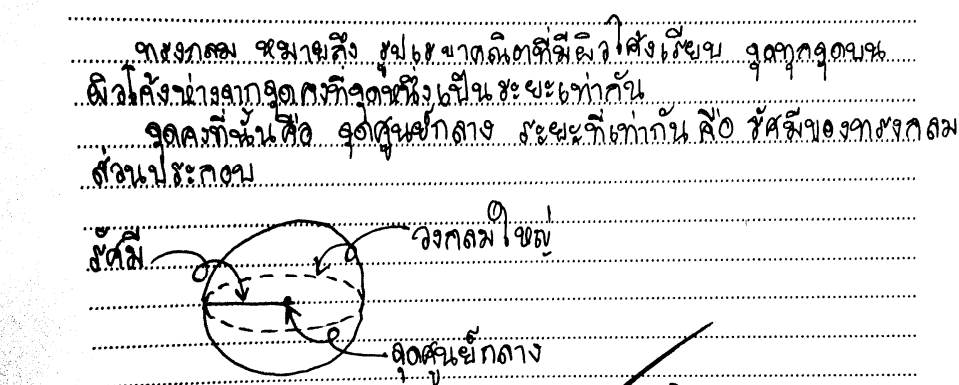 ทรงกลม หมายถึง รูปเรขาคณิตที่มีผิวโค้งเรียบ จุดทุกจุดบน
ผิวโค้งห่างจากจุดคงที่จุดหนึ่งเป็นระยะเท่ากัน
จุดคงที่นั้นคือ จุดศูนย์กลาง ระยะที่เท่ากัน คือ รัศมีของทรงกลม
ส่วนประกอบ
วงกลมใหญ่
รัศมี
จุดศูนย์กลาง